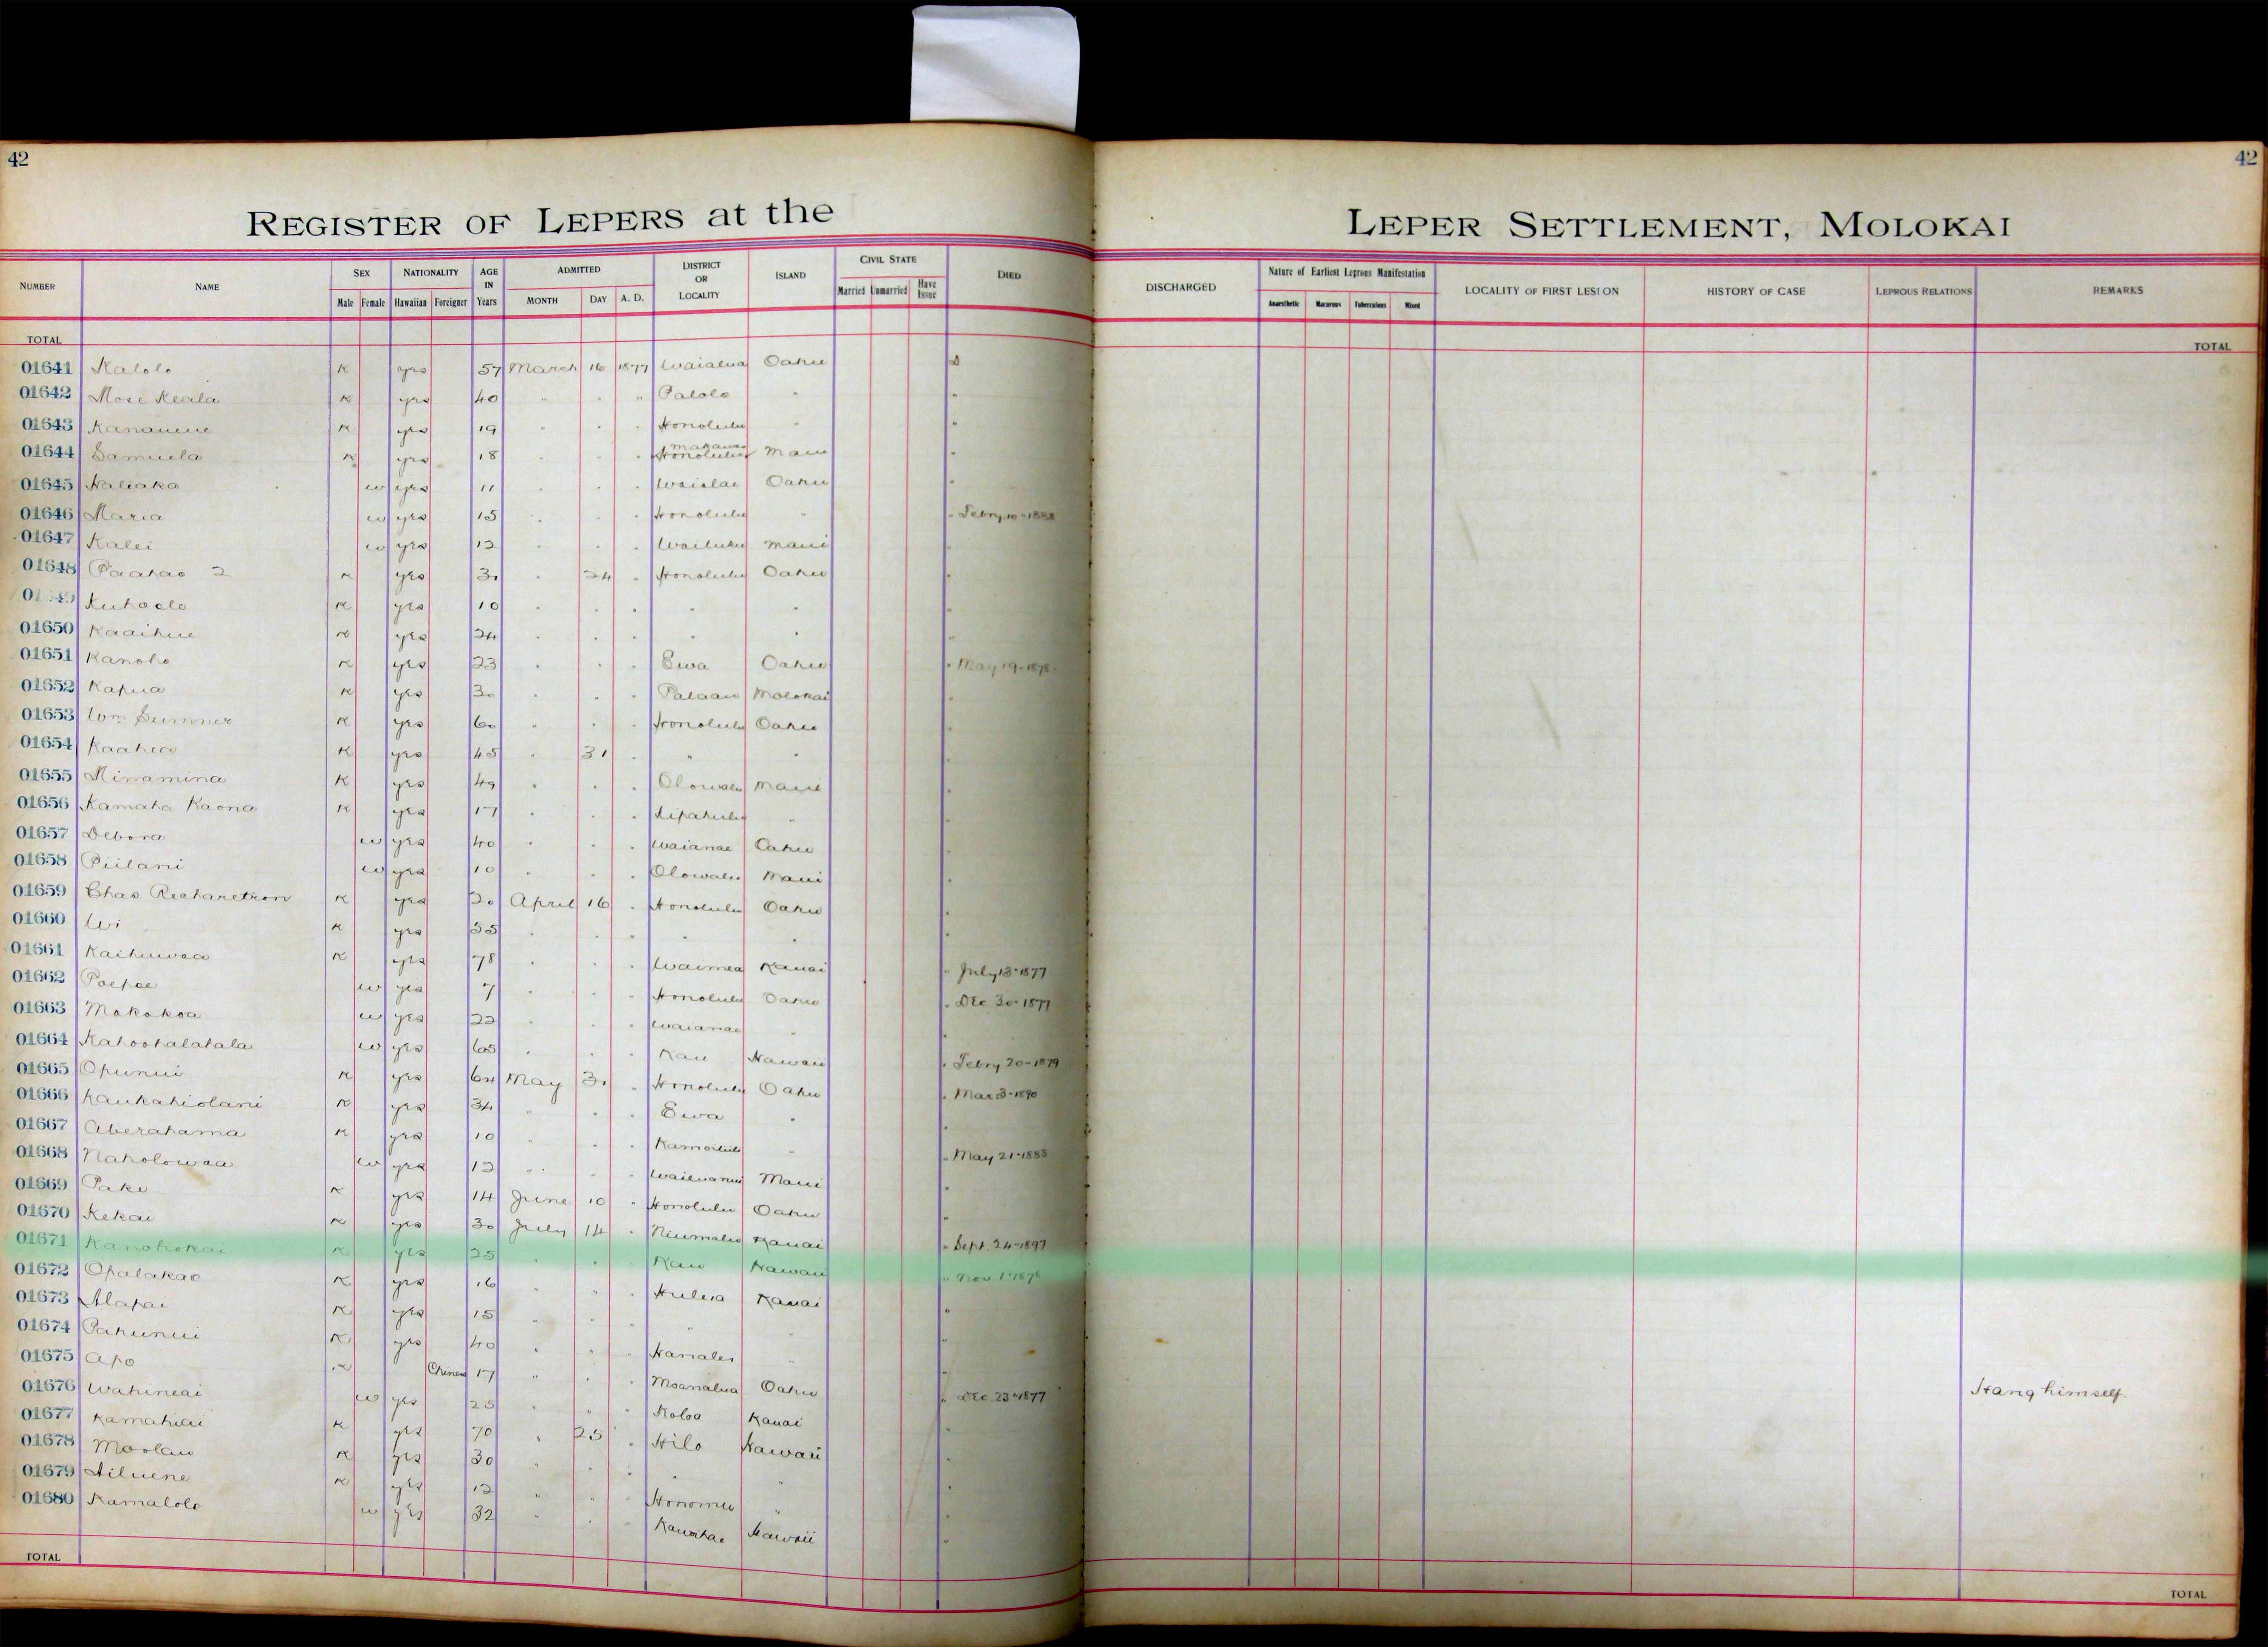 42
42
REGISTER OF LEPERS at the LEPER SETTLEMENT, MOLOKAI
NUMBER NAME SEX Male Female NATIONALITY Hawaiian Foreigner AGE IN Years ADMITTED MONTH DAY A. D. DISTRICT OR LOCALITY ISLAND CIVIL STATE Married Unmarried Have Issue DIED DISCHARGED Nature of Earliest Leprous Manifestation Anaesthetic Macurous Tuberculous Mixed LOCALITY OF FIRST LESION HISTORY OF CASE LEPROUS RELATIONS REMARKS
TOTAL TOTAL
01641 Kalolo K yes 57 March 16 1877 Waialua Oahu D
01642 Mose Keala K yes 40 " " " Palolo " "
01643 Kananene K yes 19 " " " Honolulu " "
01644 Samuela K yes 18 " " " Honolulu Makawao Maui "
01645 Naliaka w yes 11 " " " Waialae Oahu "
01646 Maria w yes 15 " " " Honolulu " " Febry 10-1888
01647 Kalei w yes 12 " " " Wailuku Maui "
01648 Paahao 2 K yes 30 " 24 " Honolulu Oahu "
Kuhaelo K yes 10 " " " " " "
01650 Kaaihue K yes 24 " " " " " "
01651 Kanoho K yes 23 " " " Ewa Oahu " May 19-1878
01652 Kapua K yes 30 " " " Palaau Molokai "
01653 Wm Sumner K yes 60 " " " Honolulu Oahu "
01654 Kaahea K yes 45 " 31 " " " "
01655 Minamina K yes 49 " " " Olowalu Maui "
01656 Kamaha Kaona K yes 17 " " " Kipahulu " "
01657 Debora w yes 40 " " " Waianae Oahu "
01658 Piilani w yes 10 " " " Olowalu Maui "
01659 Chas Richaretson K yes 20 April 16 " Honolulu Oahu "
01660 Wi K yes 35 " " " " " "
01661 Kaihuwaa K yes 78 " " " Waimea Kauai " July 13-1877
01662 Poepoe w yes 7 " " " Honolulu Oahu " Dec 30-1877
01663 Makakoa w yes 22 " " " Waianae " "
01664 Kahoohalahala w yes 65 " " " Kau Hawaii " Febry 20-1879
01665 Opunui K yes 64 May 31 " Honolulu Oahu " Mar 3-1890
01666 Kaukahiolani K yes 34 " " " Ewa " "
01667 Aberahama K yes 10 " " " Kamoiliili " " May 21-1888
01668 Naholowaa w yes 12 " " " Wailuanui Maui "
01669 Pake K yes 14 June 10 " Honolulu Oahu "
01670 Kekai K yes 30 July 14 " Niumalu Kauai " Sept 24-1897
01671 Kanohokai K yes 25 " " " Kau Hawaii " Nov 1-1878
01672 Opalakao K yes 16 " " " Huleia Kauai "
01673 Alapai K yes 15 " " " " " "
01674 Pahunui K yes 40 " " " Hanalei " "
01675 Apo K Chinese 17 " " " Moanalua Oahu " Dec 23-1877 Hang himself.
01676 Wahineai w yes 25 " " " Koloa Kauai "
01677 Kamahiai K yes 70 " 25 " Hilo Hawaii "
01678 Moolau K yes 30 " " " " " "
01679 Hiluene K yes 12 " " " Honomu " "
01680 Kamalolo w yes 32 " " " Kawaihae Hawaii "
TOTAL TOTAL